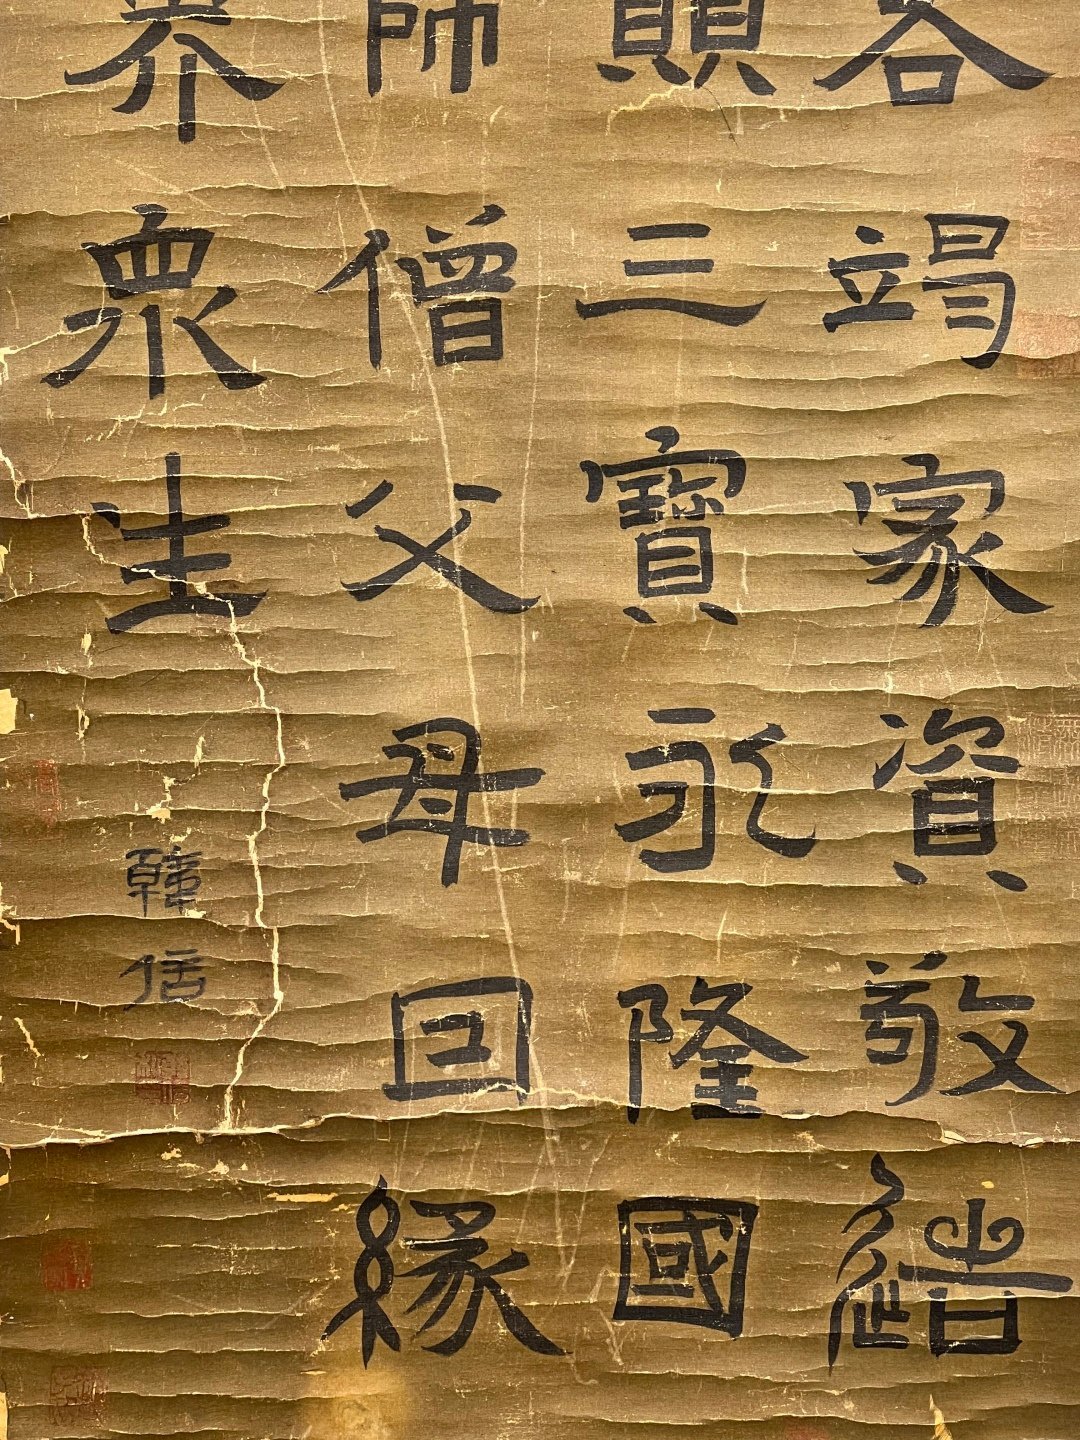 各竭家資敬造
願三寶永隆國
師僧父母囙緣
界衆生
韓信